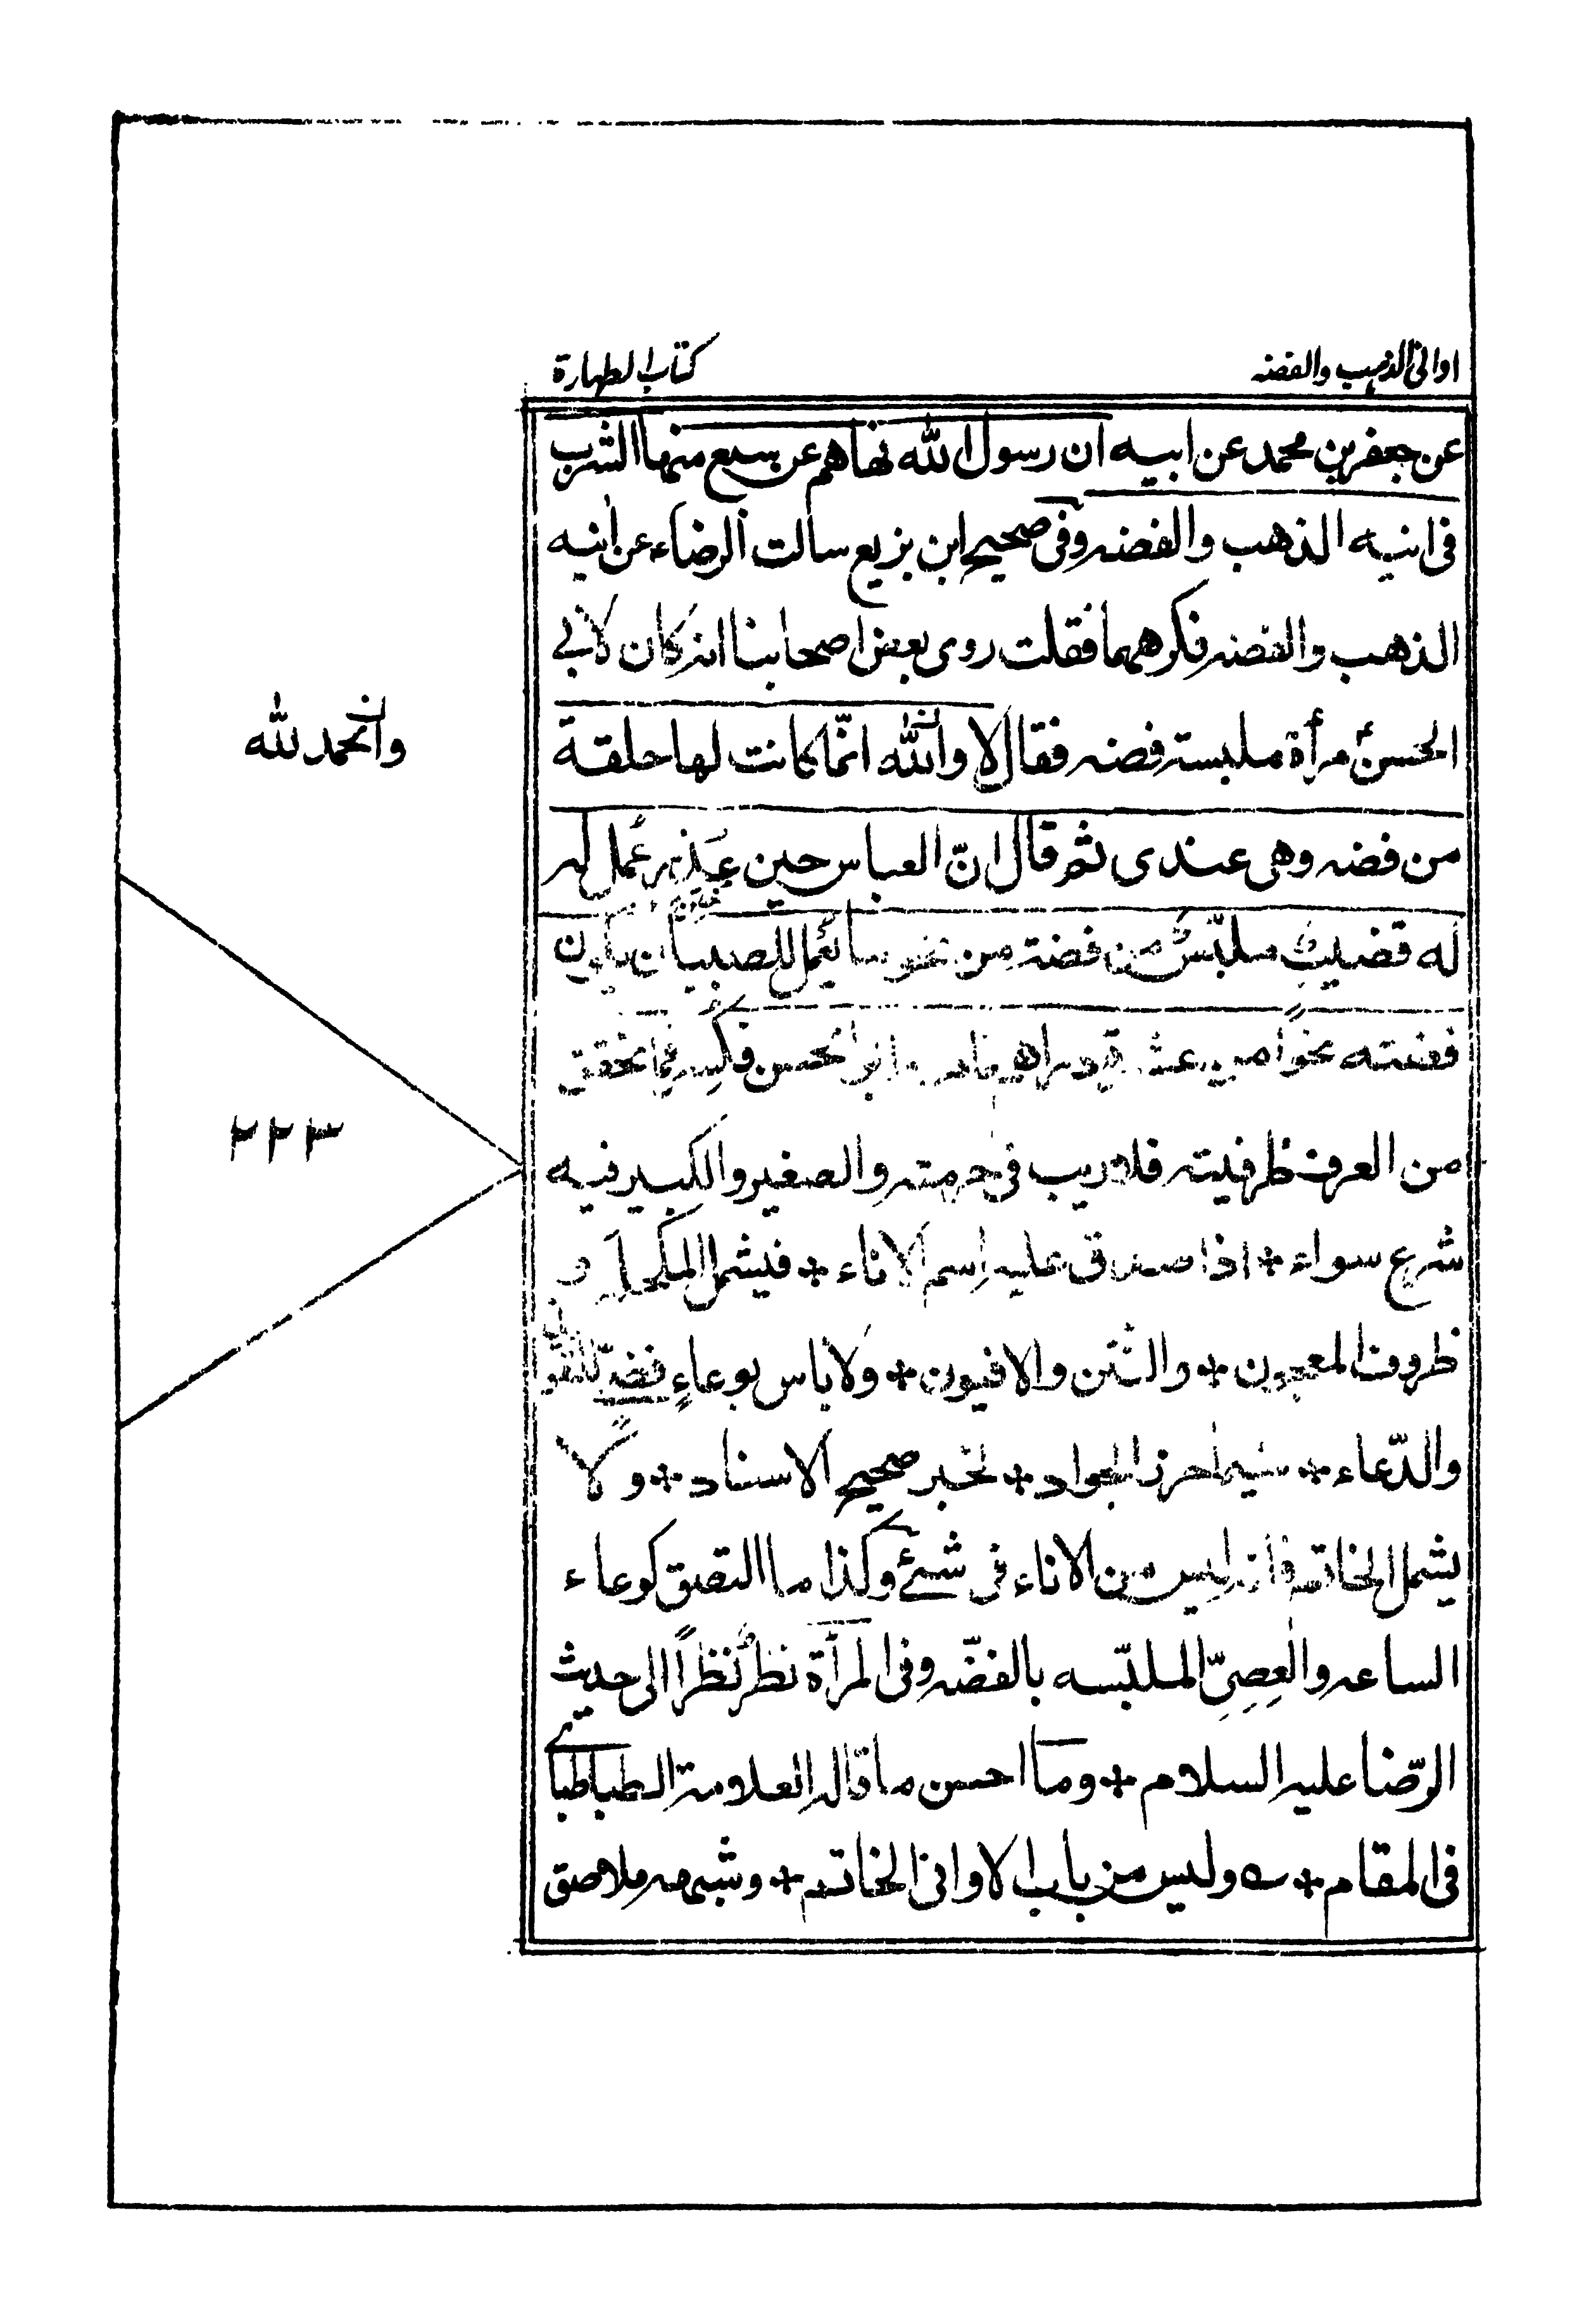 اواني الذهب والفضه
كتاب الطهارة
عن جعفر بن محمد عن ابيه ان رسول الله نهاهم عن سبع منها الشرب
في انيه الذهب والفضه وفي صحيح ابن بزيع سالت الرضاء عن انيه
الذهب والفضه فكرههما فقلت روى بعض اصحابنا انه كان لابي
الحسن مرأة ملبسته فضه فقال لا والله انّما كانت لها حلقة
والحمد لله
من فضه وهي عندى ثم قال انّ العباس حين عذر عمل له
له قضيب ملبّس من فضة من نحو ما يعمل للصبيان يكون
فضته نحواً من عشرة دراهم ابو الحسن فكسر فما تحقق
٢٢٣
من العرف ظرفيته فلا ريب في حرمته والصغير والكبير فيه
شرع سواء * اذا صدق عليه اسم الاناء * فيشمل المكحله و
ظروف المعجون * والتتن والافيون * ولا باس بوعاءٍ فضةٍ للتعو
والدّعاء * سيما حرز الجواد * لخبر صحيح الاسناد * ولا
يشمل الخاتم فانه ليس من الاناء في شئ وكذا ما التصق كوعاء
الساعه والعِصِىّ الملبّسه بالفضّه وفي المرأة نظرٌ نظراً الى حديث
الرّضا عليه السلام * وما احسن ما قاله العلامة الطباطبا
في المقام * وليس من باب الاواني الخاتم * وشبهه ملاصق